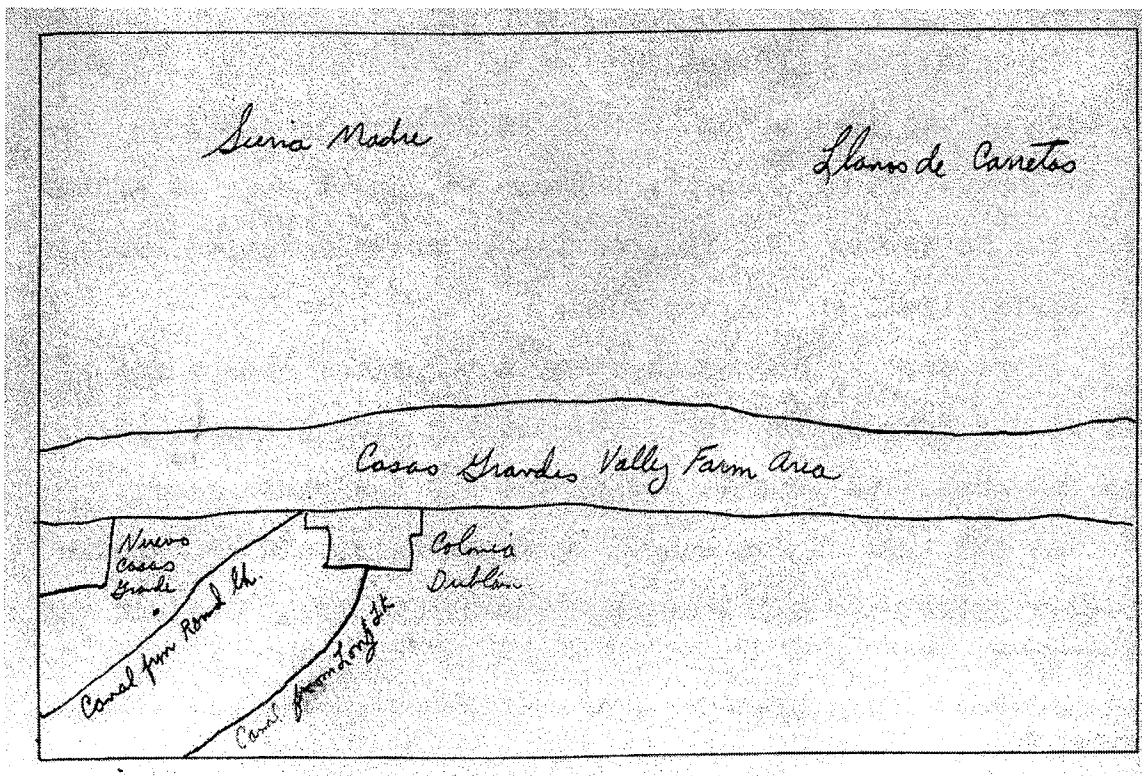 Sierra Madre
Llanos de Carretas
Casas Grandes Valley Farm Area
Nuevo
Casas
Grande
Colonia
Dublan
Canal frm Round Lk.
Canal from Long Lk